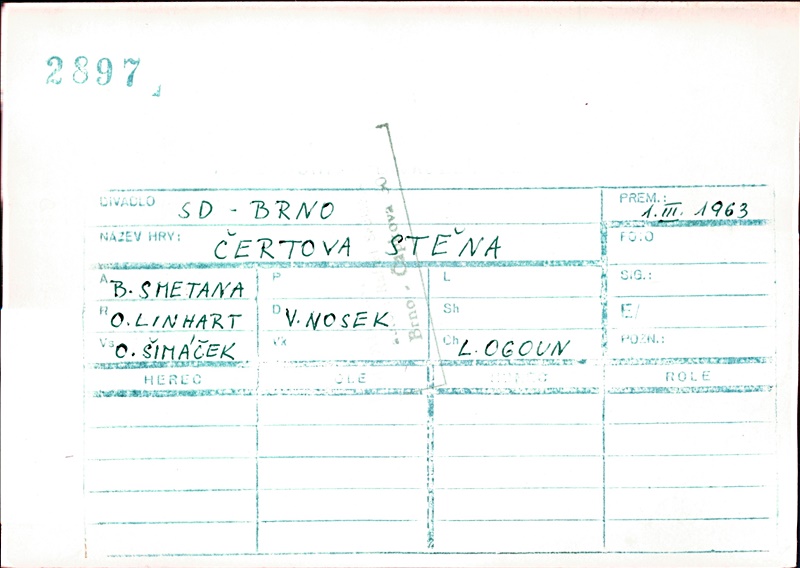 2897
DIVADLO SD - BRNO PREM.: 1. III. 1963
NÁZEV HRY: ČERTOVA STĚNA FOTO
A B. SMETANA P L SIG.:
R O. LINHART D V. NOSEK Sh E/
Vs O. ŠIMÁČEK Vk Ch L. OGOUN POZN.:
HEREC ROLE
Brno -